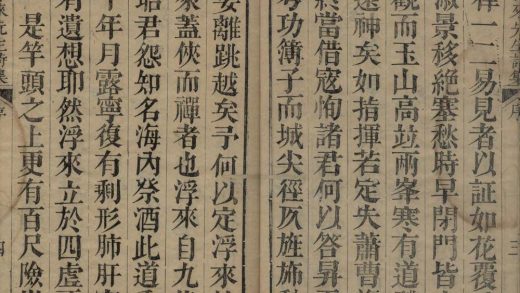 禪一二易見者以証如花覆
景移絶塞愁時早閉門皆
觀而玉山高竝兩峯寒有道
遠神矣如指揮若定失蕭曹
終當借寇恂諸君何以答昇
考功簿子而城尖徑仄旌斾
離跳越矣予何以定浮來
家蓋俠而禪者也浮來自九
昭君怨知名海內祭酒此道
十年月露寧復有剩形肺肝
有遺想耶然浮來立於四虛
是竿頭之上更有百尺險